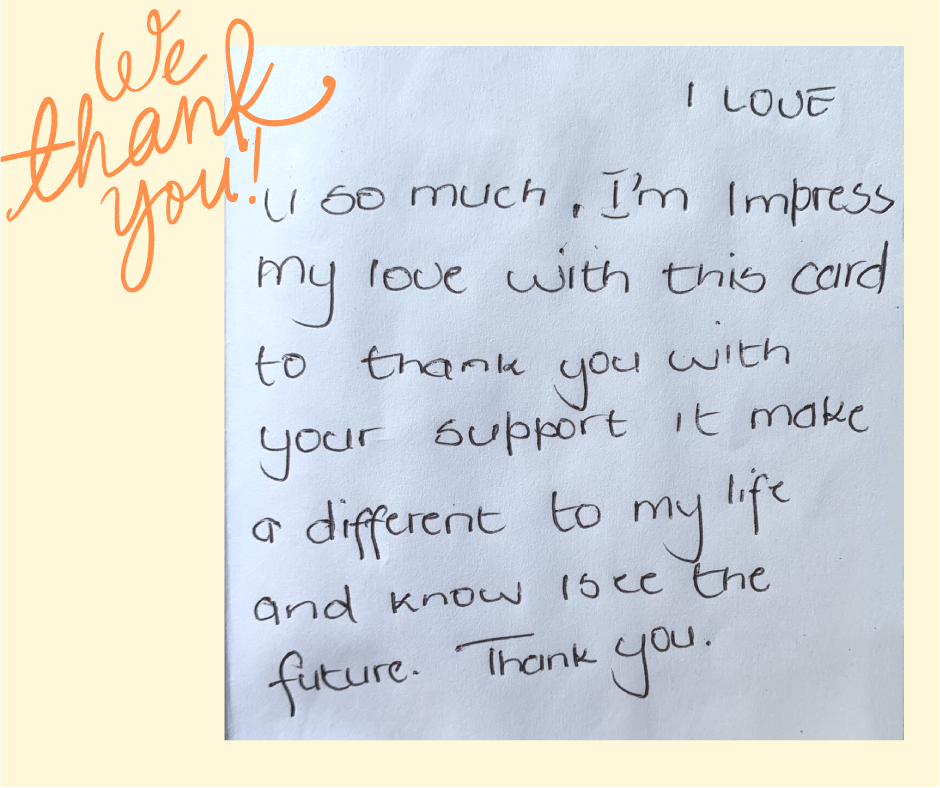 We
thank
you!
I LOVE
U so much, I'm Impress
my love with this card
to thank you with
your support it make
a different to my life
and know I see the
future. Thank you.